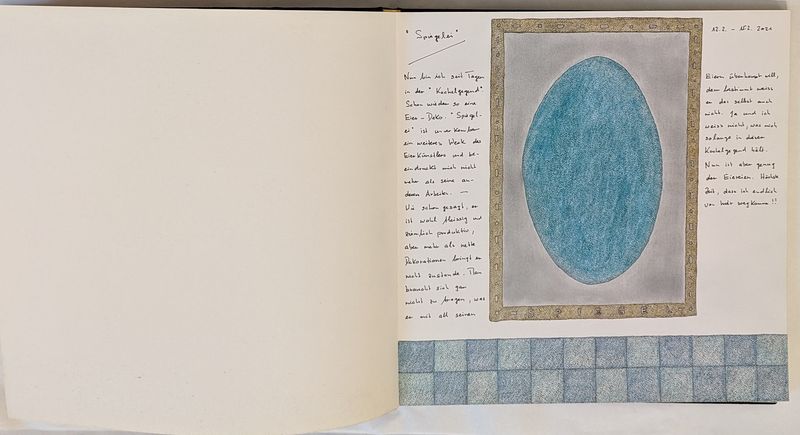 "Spiegelei"
12.2. – 15.2. 2021
Nun bin ich seit Tagen
in der "Kachelgegend"
Schon wieder so eine
Eier-Deko. "Spiegel-
ei" ist unverkennbar
ein weiteres Werk des
Eierkünstlers und be-
eindruckt mich nicht
mehr als seine an-
deren Arbeiten. —
Wie schon gesagt, er
ist wohl fleissig und
ziemlich produktiv,
aber mehr als nette
Dekorationen bringt er
nicht zustande. Man
braucht sich gar
nicht zu fragen, was
er mit all seinen
Eiern überhaupt will,
denn bestimmt weiss
er das selbst auch
nicht. Ja und ich
weiss nicht, was mich
solange in dieser
Kachelgegend hält.
Nun ist aber genug
der Eiereien. Höchste
Zeit, dass ich endlich
von hier wegkomme!!